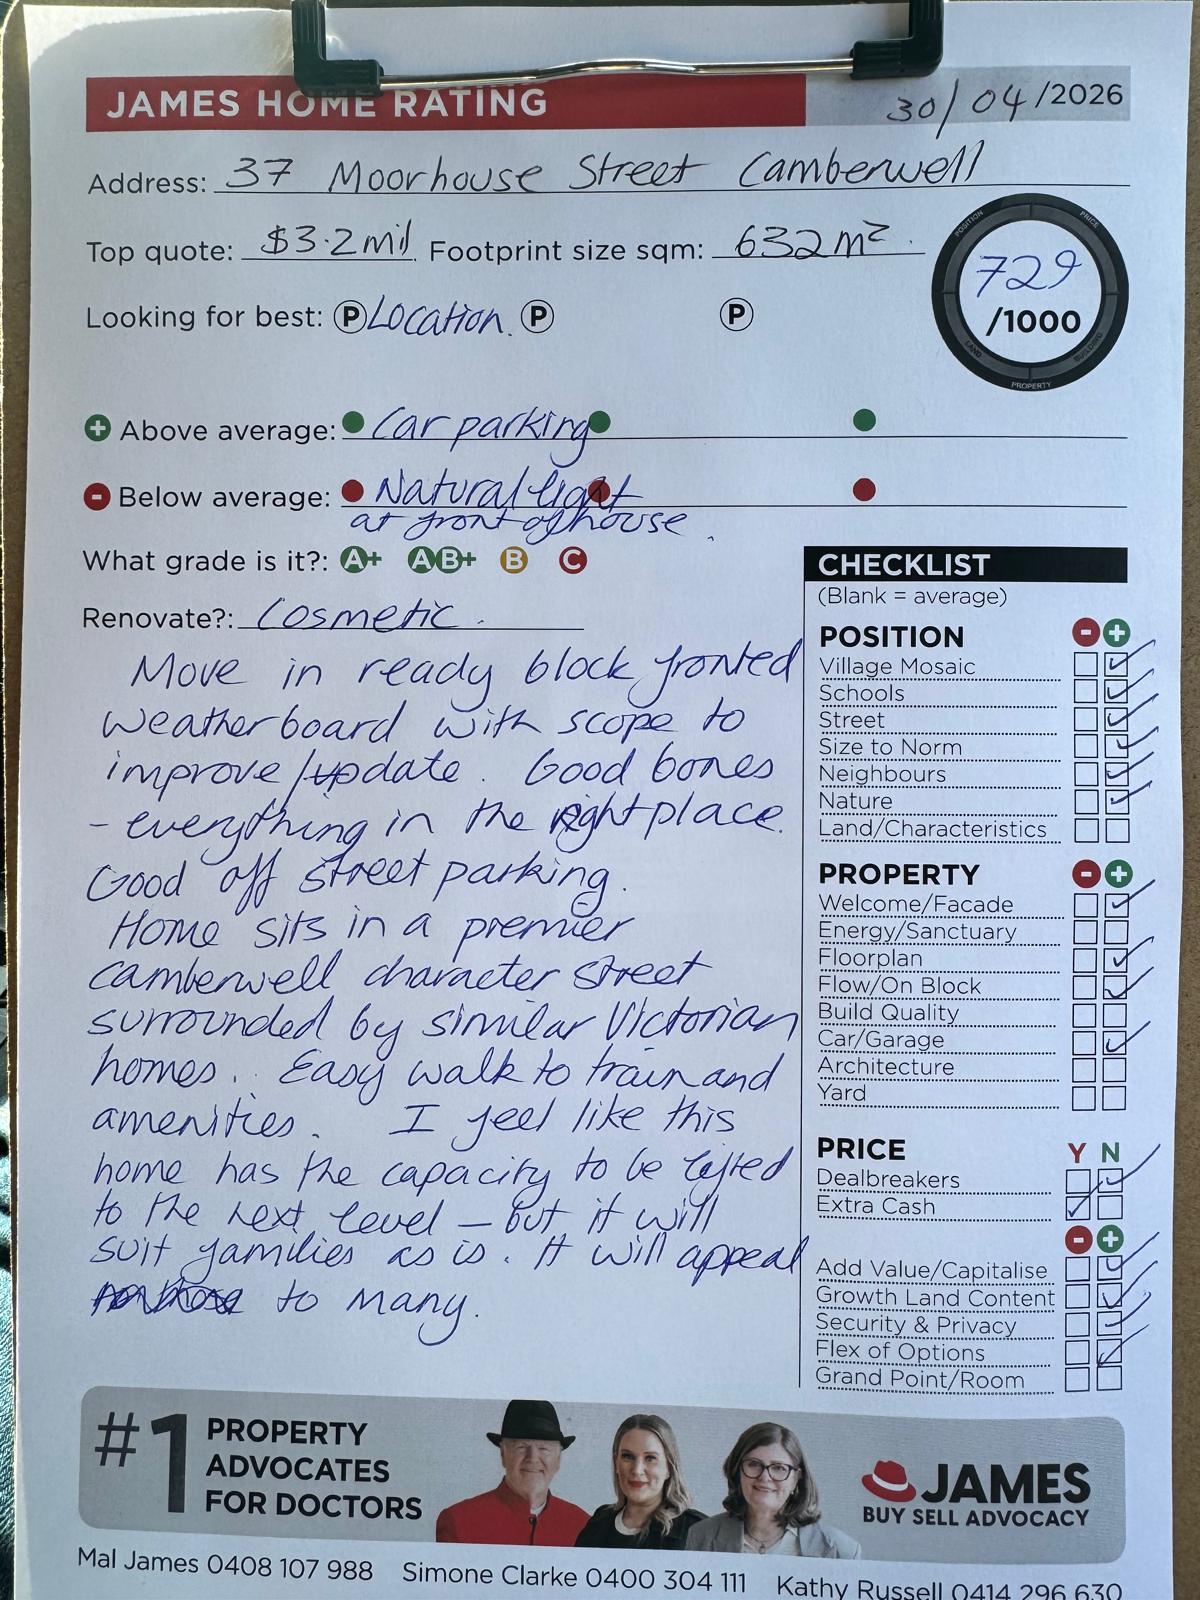 JAMES HOME RATING
30/04/2026
Address: 37 Moorhouse Street Camberwell
Top quote: $3.2mil Footprint size sqm: 632m².
POSITION PRICE
729
/1000
LAND BUILDING
PROPERTY
Looking for best: P Location. P P
+ Above average: Car parking
- Below average: Natural light
at front of house.
What grade is it?: A+ AB+ B C
Renovate?: Cosmetic.
Move in ready block fronted
weatherboard with scope to
improve/update. Good bones
- everything in the right place.
Good off street parking.
Home sits in a premier
camberwell character street
surrounded by similar Victorian
homes. Easy walk to train and
amenities. I feel like this
home has the capacity to be lifted
to the next level - but it will
suit families as is. It will appeal
to many.
CHECKLIST
(Blank = average)
POSITION - +
Village Mosaic ✓
Schools ✓
Street ✓
Size to Norm ✓
Neighbours ✓
Nature ✓
Land/Characteristics
PROPERTY - +
Welcome/Facade ✓
Energy/Sanctuary
Floorplan ✓
Flow/On Block ✓
Build Quality
Car/Garage ✓
Architecture
Yard
PRICE Y N
Dealbreakers ✓
Extra Cash ✓
- +
Add Value/Capitalise ✓
Growth Land Content ✓
Security & Privacy ✓
Flex of Options ✓
Grand Point/Room
#1 PROPERTY
ADVOCATES
FOR DOCTORS
JAMES
BUY SELL ADVOCACY
Mal James 0408 107 988 Simone Clarke 0400 304 111 Kathy Russell 0414 296 630